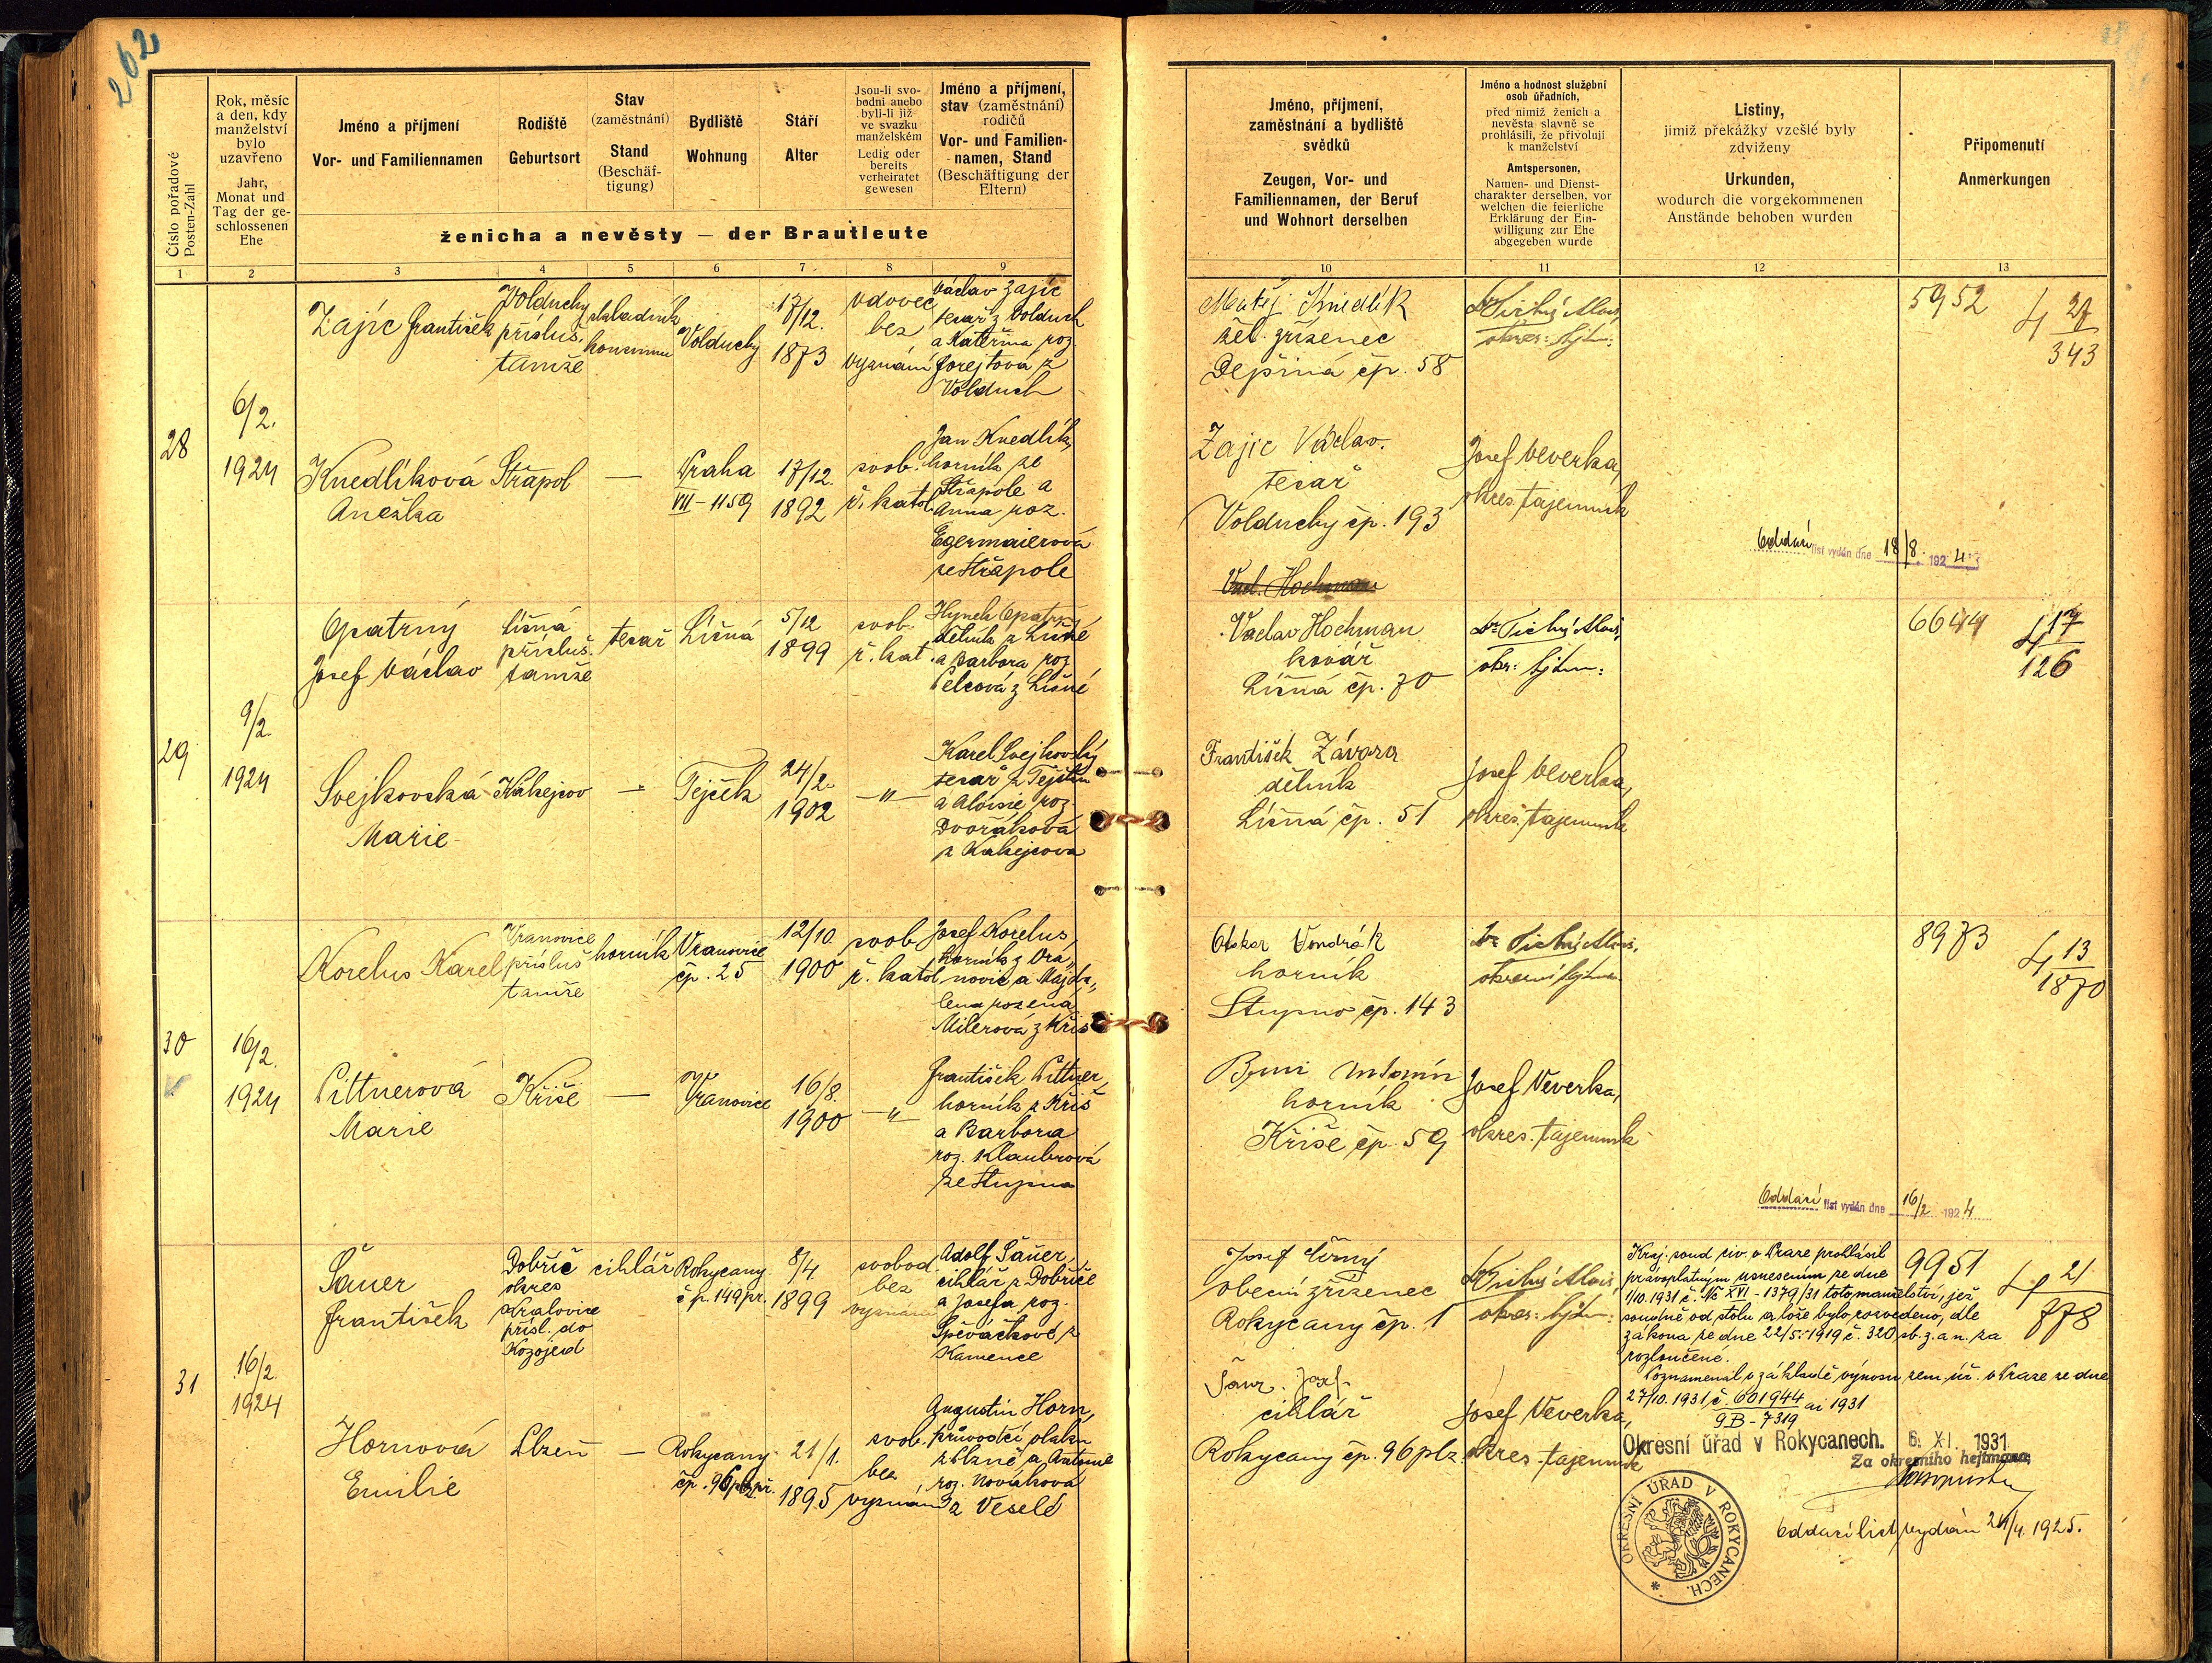 262
Číslo pořadové
Posten-Zahl
Rok, měsíc
a den, kdy
manželství
bylo
uzavřeno
Jahr,
Monat und
Tag der ge-
schlossenen
Ehe
Jméno a příjmení
Vor- und Familiennamen
Rodiště
Geburtsort
Stav
(zaměstnání)
Stand
(Beschäf-
tigung)
Bydliště
Wohnung
Stáří
Alter
Jsou-li svo-
bodni anebo
byli-li již
ve svazku
manželském
Ledig oder
bereits
verheiratet
gewesen
Jméno a příjmení,
stav (zaměstnání)
rodičů
Vor- und Familien-
namen, Stand
(Beschäftigung der
Eltern)
ženicha a nevěsty — der Brautleute
Jméno, příjmení,
zaměstnání a bydliště
svědků
Zeugen, Vor- und
Familiennamen, der Beruf
und Wohnort derselben
Jméno a hodnost služební
osob úřadních,
před nimiž ženich a
nevěsta slavně se
prohlásili, že přivolují
k manželství
Amtspersonen,
Namen- und Dienst-
charakter derselben, vor
welchen die feierliche
Erklärung der Ein-
willigung zur Ehe
abgegeben wurde
Listiny,
jimiž překážky vzešlé byly
zdviženy
Urkunden,
wodurch die vorgekommenen
Anstände behoben wurden
Připomenutí
Anmerkungen
1 2 3 4 5 6 7 8 9 10 11 12 13
28
6/2.
1924
Zajíc František
Volduchy
přísluš.
tamže
skladník
konsumu
Volduchy
17/12.
1873
vdovec
bez
vyznání
Václav Zajíc
tesař z Volduch
a Kateřina roz.
Forejtová z
Volduch
Matěj Knedlík
žel. zřízenec
Dejšiná čp. 58
Dr Tichý Alois,
okres. hejtm.
5952
27
343
Knedlíková
Anežka
Střapol
—
Praha
VII - 1159
17/12.
1892
svob.
ř. katol.
Jan Knedlík,
horník ze
Střapole a
Anna roz.
Egermaierová
ze Střapole
Zajíc Václav.
tesař
Volduchy čp. 193
Josef Veverka,
okres. tajemník
Oddací list vydán dne 18/8. 1924
Vacl. Hochman
29
9/2.
1924
Opatrný
Josef Václav
Líšná
přísluš.
tamže
tesař
Líšná
5/12
1899
svob.
ř. kat.
Hynek Opatrný
dělník z Líšné
a Barbora roz.
Pelcová z Líšné
Vaclav Hochman
kovář
Líšná čp. 70
Dr Tichý Alois,
okr. hejtm.
6644
17
126
Svejkovská
Marie
Kakejcov
—
Tejček
24/2.
1902
—"—
Karel Svejkovský
tesař z Tejčku
a Aloisie roz.
Dvořáková
z Kakejcova
František Závora
dělník
Líšná čp. 51
Josef Veverka,
okres. tajemník
30
16/2.
1924
Korelus Karel
Vranovice
přísluš
tamže
horník
Vranovice
čp. 25
12/10.
1900
svob
ř. katol
Josef Korelus,
horník z Vra„
novic a Majda„
lena rozená
Milerová z Kříš
Otokar Vondrák
horník
Stupno čp. 143
Dr Tichý Alois,
okresní hejtm.
8973
13
1870
Pittnerová
Marie
Kříše
—
Vranovice
16/8.
1900
—"—
František Pittner,
horník z Kříš
a Barbora
roz. Klaubrová
ze Stupna
Antonín
horník
Kříše čp. 59
Josef Veverka,
okres. tajemník
Oddací list vydán dne 16/2 1924
31
16/2.
1924
Šauer
František
Dobříč
okres
Kralovice
přísl. do
Kozojed
cihlář
Rokycany
čp. 149 pr.
8/4.
1899
svobod.
bez
vyznání
Adolf Šauer,
cihlář z Dobříče
a Josefa roz.
Spěváčková z
Kamence
Josef Černý
obecní zřízenec
Rokycany čp. 1
Dr Tichý Alois,
okres. hejtm.
Kraj. soud civ. v Praze prohlásil
pravoplatným usnesením ze dne
1/10.1931 č. Nc XVI - 1379/31 toto manželství, jež
soudně od stolu a lože bylo rozvedeno, dle
zákona ze dne 22/5. 1919 č. 320 sb. z. a n. za
rozloučené.
Poznamenal v základě výnosu zem. úř. v Praze ze dne
27/10. 1931 č. 601944 ai 1931
9B - 7319
9951
21
778
Hornová
Emilie
Plzeň
—
Rokycany
čp. 96 plz. př.
21/1.
1895
svob.
bez
vyznání
Augustin Horn,
průvodčí vlaku
z Plzně a Antonie
roz. Nováková
z Veselé
Šaur. Josef
cihlář
Rokycany čp. 96 plz
Josef Veverka,
okres. tajemník
Okresní úřad v Rokycanech. 6. XI. 1931
Za okresního hejtmana:
OKRESNÍ ÚŘAD V ROKYCANECH.
Oddací list vydán 24/4. 1925.